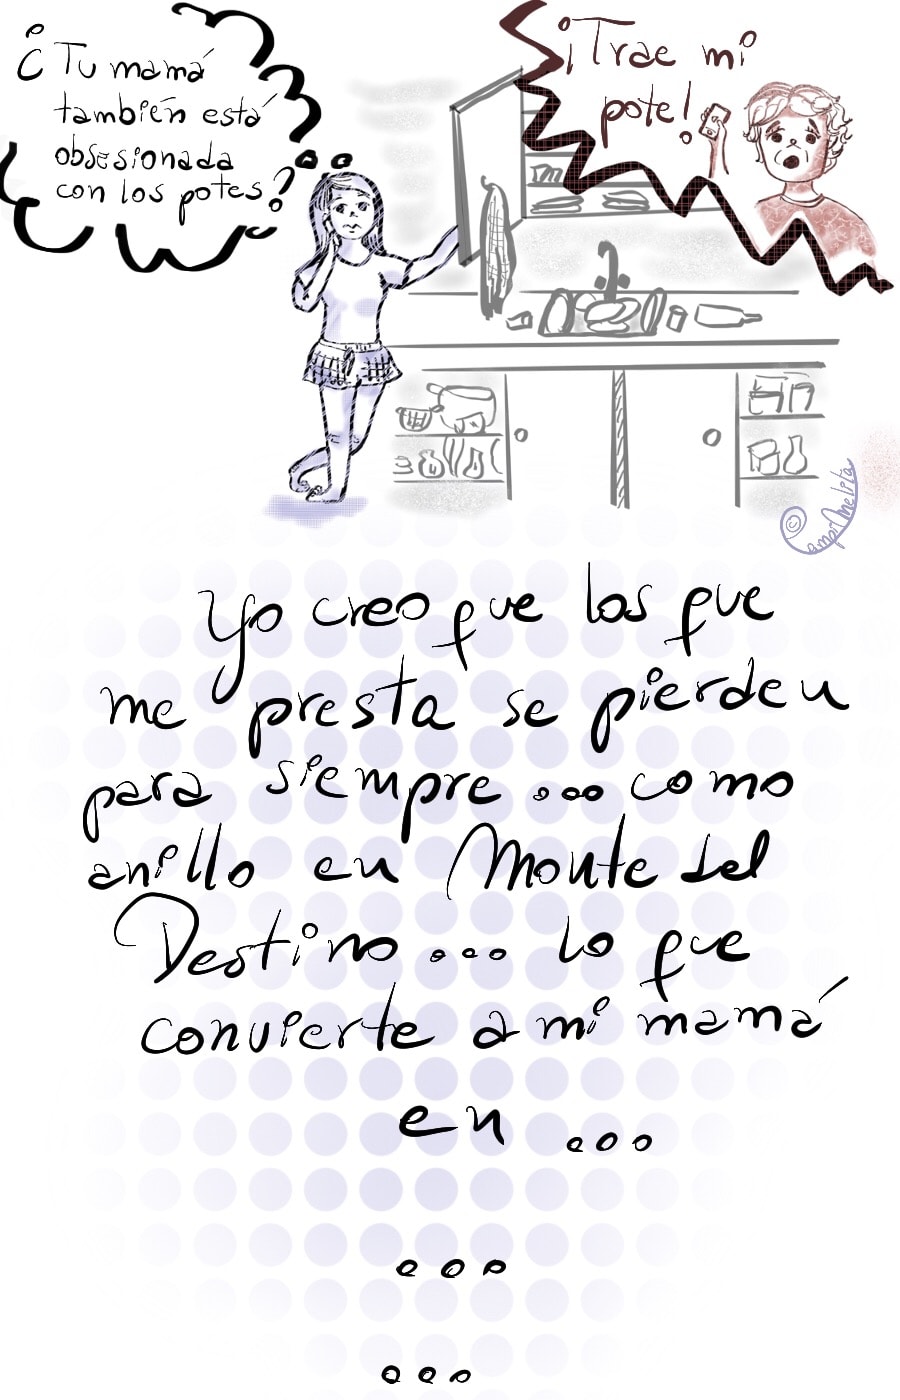 ¿Tu mamá
también está
obsesionada
con los potes?
Si Trae mi
pote!
© CampiAmelita
Yo creo que los que
me presta se pierden
para siempre... como
anillo en Monte del
Destino... lo que
convierte a mi mamá
en ...
...
...